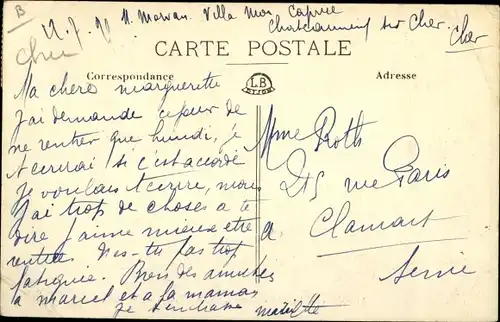 B
M. Morvan. Villa Mon Caprice
Chateauneuf sur Cher. Cher
Cher
CARTE POSTALE
Correspondance
LB
Adresse
Ma chere marguerite
J'ai demande ce jour de
ne rentrer que lundi, je
t'ecrirai si c'est accordé
Je voulais t'ecrire, mais
J'ai trop de choses a te
dire j'aime mieux etre
rentrée N'es-tu pas trop
fatiguée. Bien des amities
a marcel et a ta maman
Je t'embrasse
Mme Roth
215 rue Paris
a Clamart
Seine